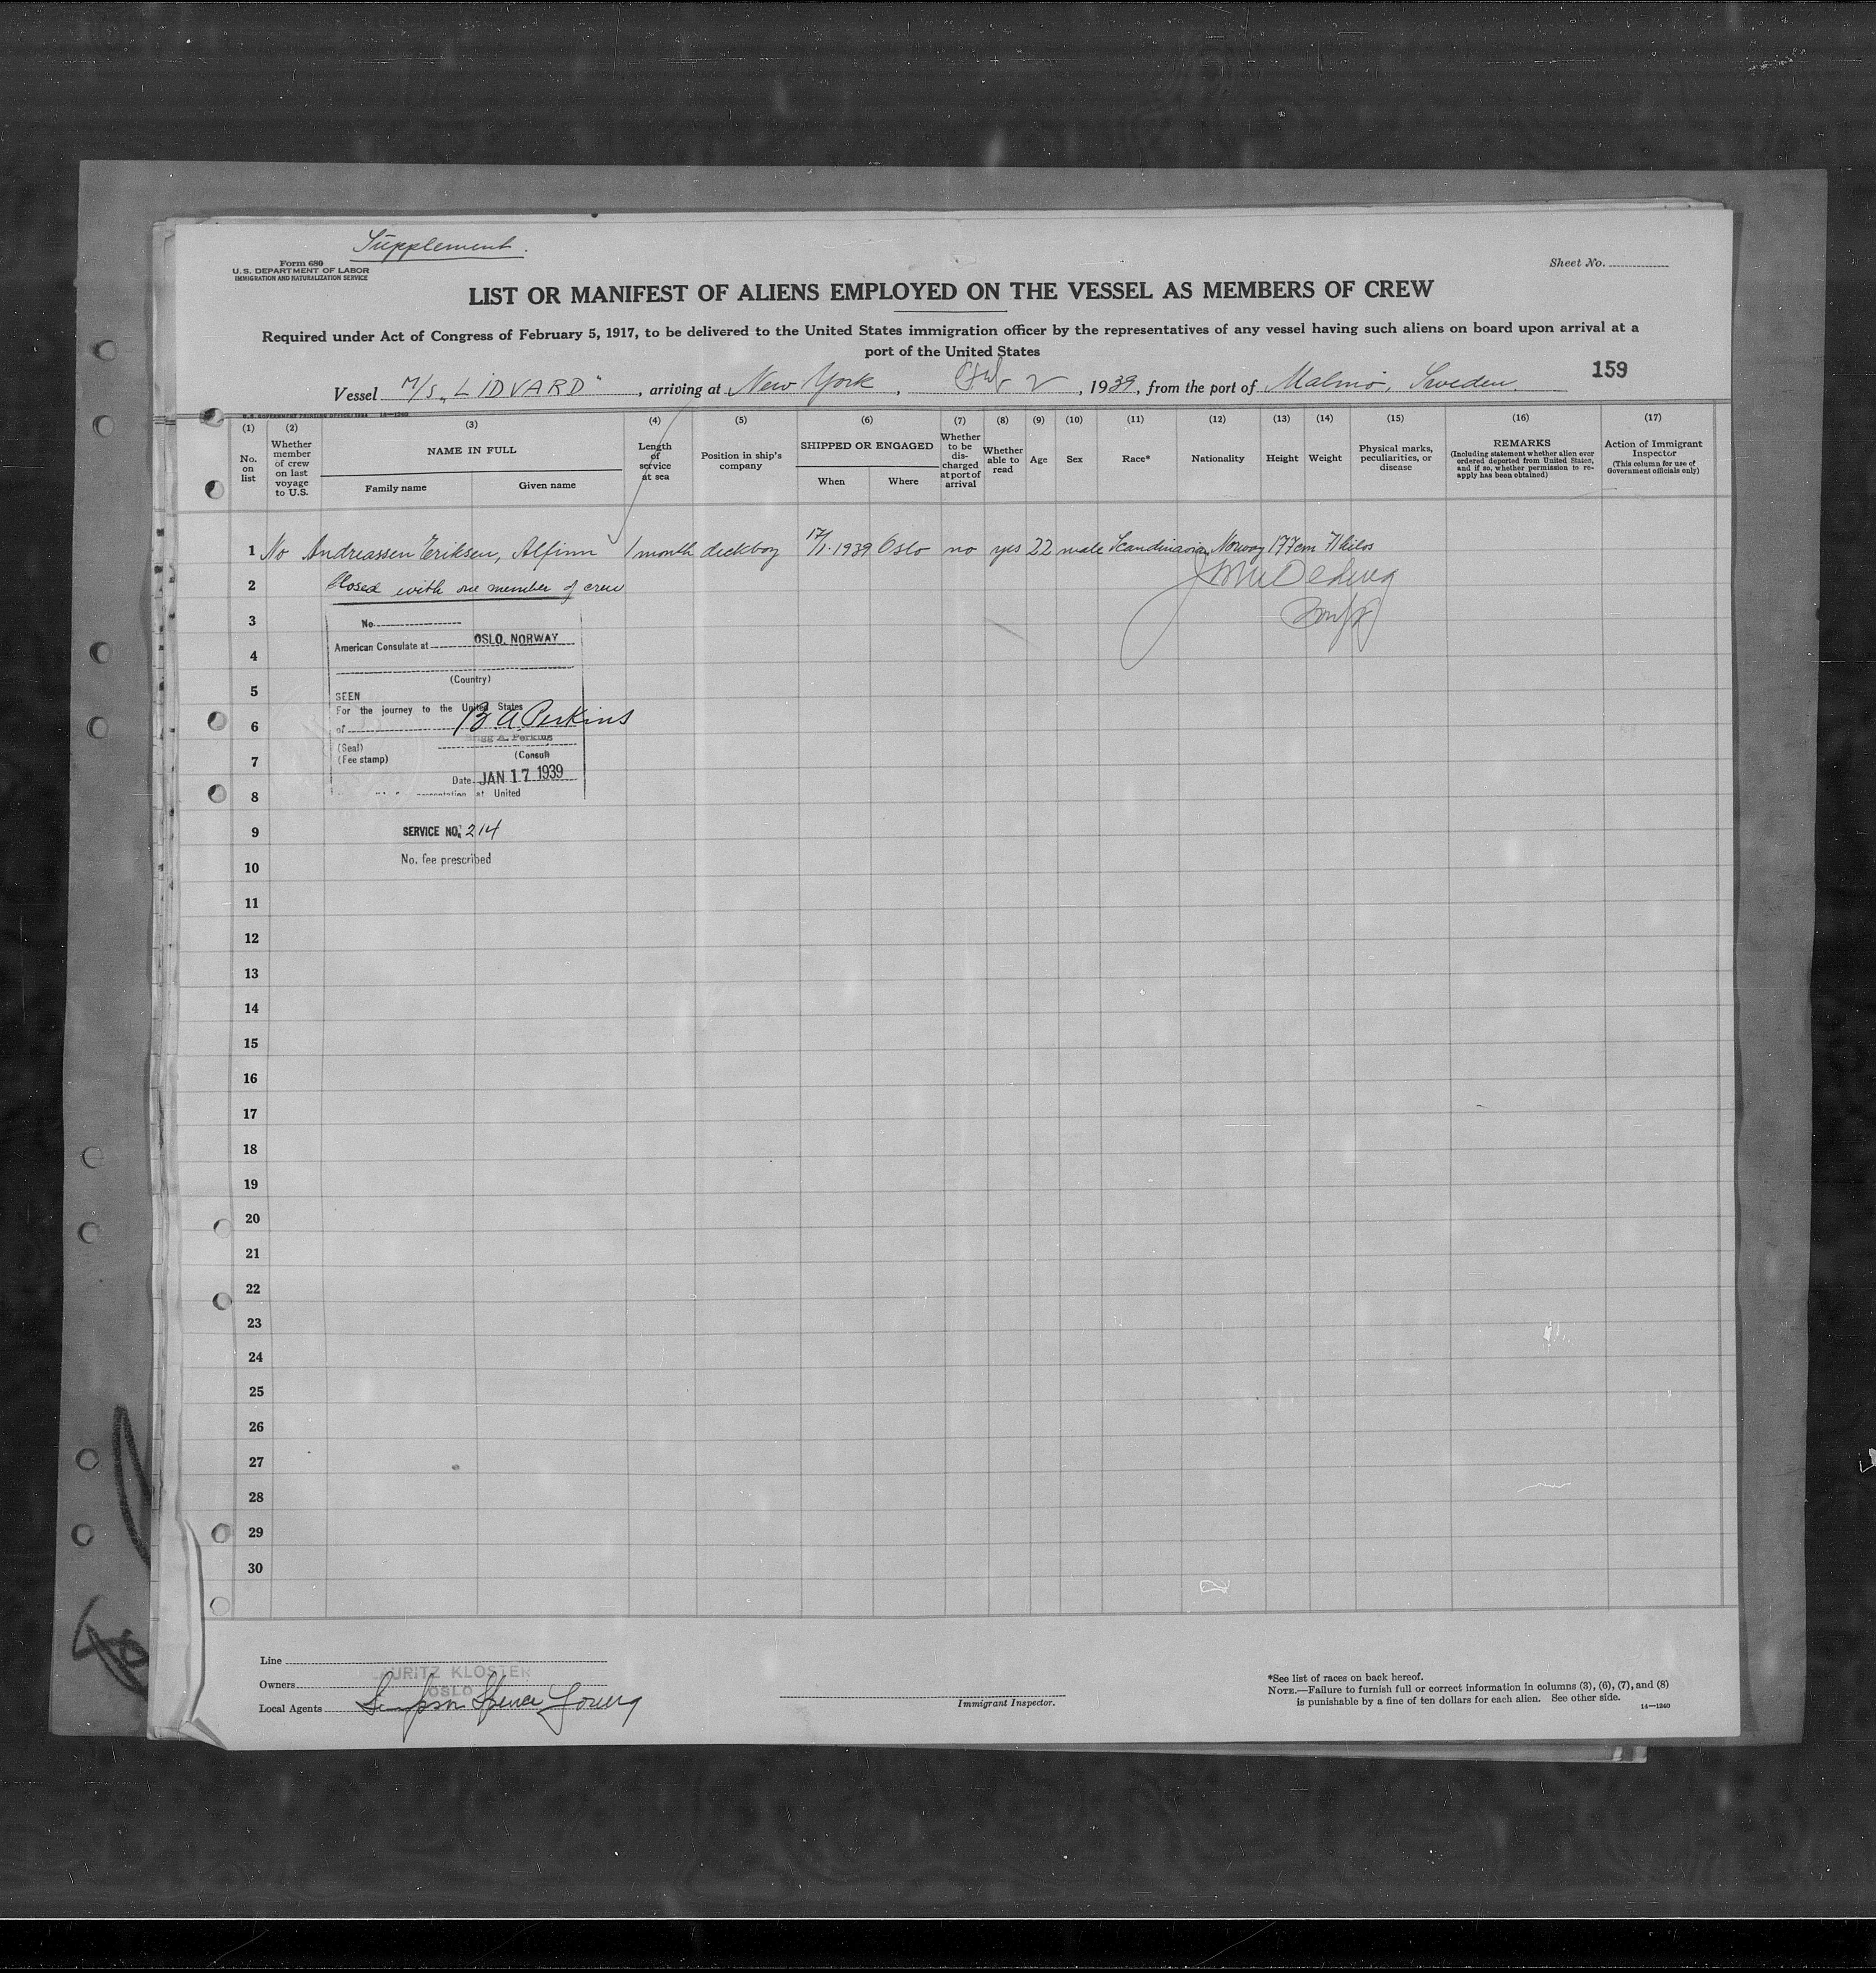 Supplement.
Form 680
U.S. DEPARTMENT OF LABOR
IMMIGRATION AND NATURALIZATION SERVICE
Sheet No.
LIST OR MANIFEST OF ALIENS EMPLOYED ON THE VESSEL AS MEMBERS OF CREW
Required under Act of Congress of February 5, 1917, to be delivered to the United States immigration officer by the representatives of any vessel having such aliens on board upon arrival at a
port of the United States
159
Vessel M/S „LIDVARD", arriving at New York, Feb 2, 1939, from the port of Malmö, Sweden.
(1) (2) (3) (4) (5) (6) (7) (8) (9) (10) (11) (12) (13) (14) (15) (16) (17)
No. on list
Whether member of crew on last voyage to U.S.
NAME IN FULL
Family name
Given name
Length of service at sea
Position in ship's company
SHIPPED OR ENGAGED
When
Where
Whether to be discharged at port of arrival
Whether able to read
Age
Sex
Race*
Nationality
Height
Weight
Physical marks, peculiarities, or disease
REMARKS
(Including statement whether alien ever ordered deported from United States, and if so, whether permission to reapply has been obtained)
Action of Immigrant Inspector
(This column for use of Government officials only)
1 No Andreassen Eriksen, Alfinn 1 month deckboy 17/1.1939 Oslo no yes 22 male Scandinavian Norway 177cm 71 kilos
2 Closed with one member of crew
3
No.
American Consulate at OSLO, NORWAY
4
(Country)
5
SEEN
For the journey to the United States
6
of B A Perkins
Brigg A. Perkins
(Seal)
(Consul)
7
(Fee stamp)
Date JAN 17 1939
8
at United
9
SERVICE NO. 214
No. fee prescribed
10
11
12
13
14
15
16
17
18
19
20
21
22
23
24
25
26
27
28
29
30
Line
Owners LAURITZ KLOSTER
OSLO
Local Agents Simpson Spence Young
Immigrant Inspector.
*See list of races on back hereof.
NOTE.—Failure to furnish full or correct information in columns (3), (6), (7), and (8)
is punishable by a fine of ten dollars for each alien. See other side.
14—1240